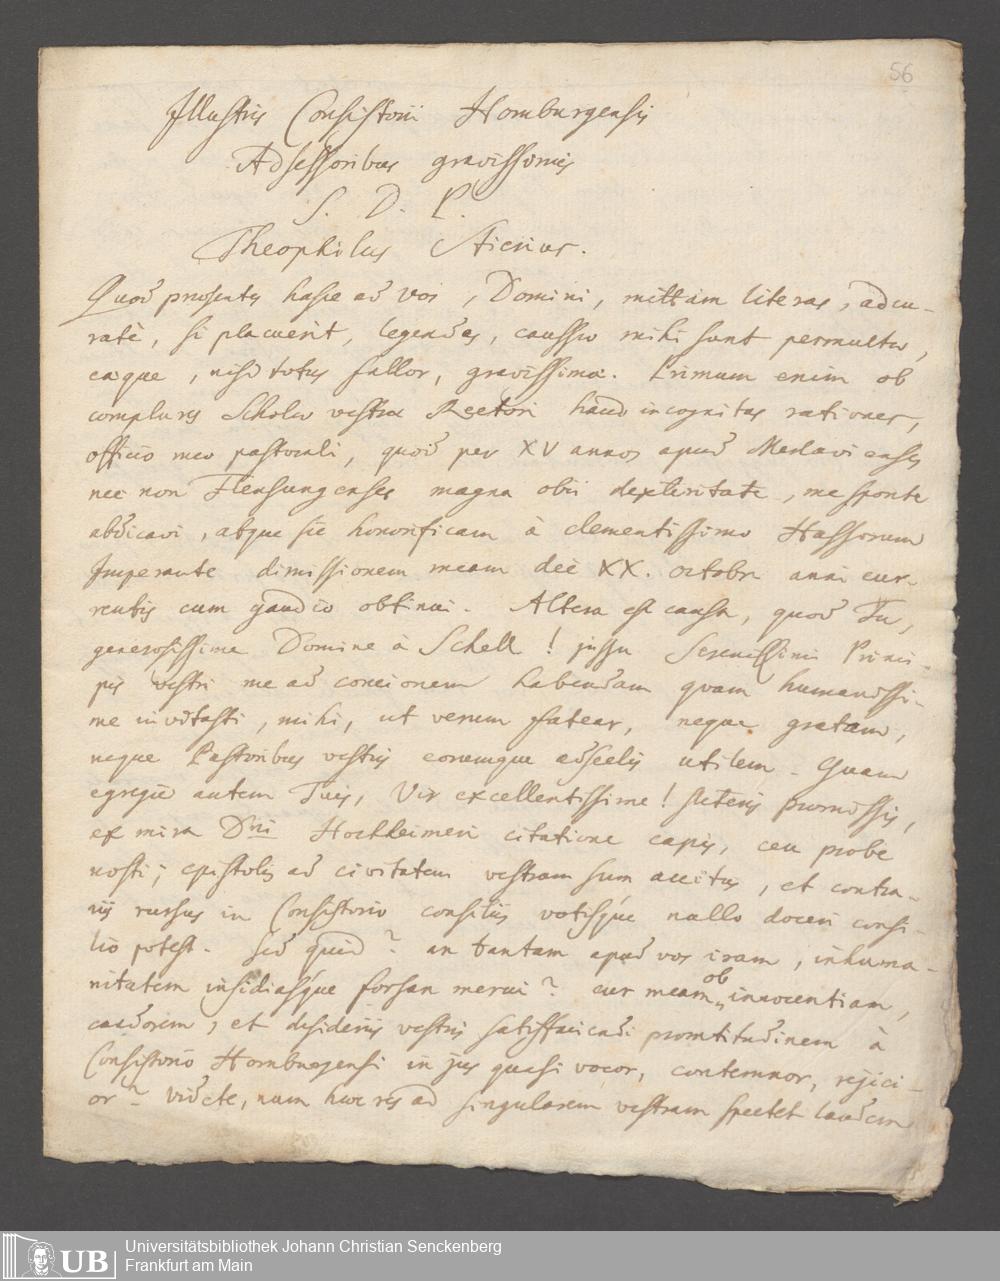 56
Illustris Consistorii Homburgensis
Adsessoribus gravissimis
S. D. P.
Theophilus
Quod præsentes hasce ad vos, Domini, mittam literas, adcu-
ratè, si placuerit, legendas, caussæ mihi sunt permultæ,
eæque, nisi totus fallor, gravissimæ. Primum enim ob
complures Scholæ vestræ Rectori haud incognitas rationes,
officio meo pastorali, quod per XV annos apud
nec non Flensungenses magna obii dexteritate, me sponte
abdicavi, atque sic honorificam à clementissimo Hassorum
Imperante dimissionem meam die XX. octobr anni cur-
rentis cum gaudio obtinui. Altera est causa, quod Tu,
generosissime Domine à Schell! jussu Serenissimi Princi-
pis vestri me ad concionem habendam quam humanissi-
me invitasti, mihi, ut verum fatear, neque gratam,
neque Pastoribus vestris eorumque adseclis utilem. Quam
egregie autem Tuis, Vir excellentissime! steteris promissis,
ex mira Dni Hochheimeri citatione capis, ceu probe
nosti; epistolis ad civitatem vestram sum accitus, et contra-
riis rursus in Consistorio consiliis votisque nullo doceri consi-
lio potest. Sed quid? an tantam apud vos iram, inhuma-
nitatem insidiasque forsan merui? cur meam ob innocentiam,
candorem, et desideriis vestris satisfaciendi promtitudinem à
Consistorio Homburgensi in jus quasi vocor, contemnor, rejici-
or? videte, num hæc res ad singularem vestram spectet laudem
UB
Universitätsbibliothek Johann Christian Senckenberg
Frankfurt am Main